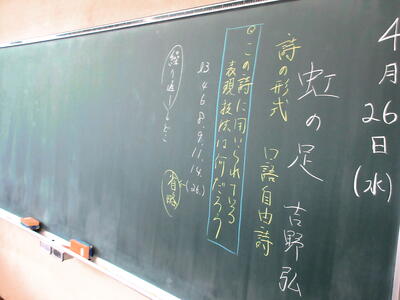 4月26日(水)
虹の足 吉野弘
詩の形式 口語自由詩
この詩に用いられている
表現技法は何だろう
4 6 8. 9. 11. 14. (26)
繰り返し
省略